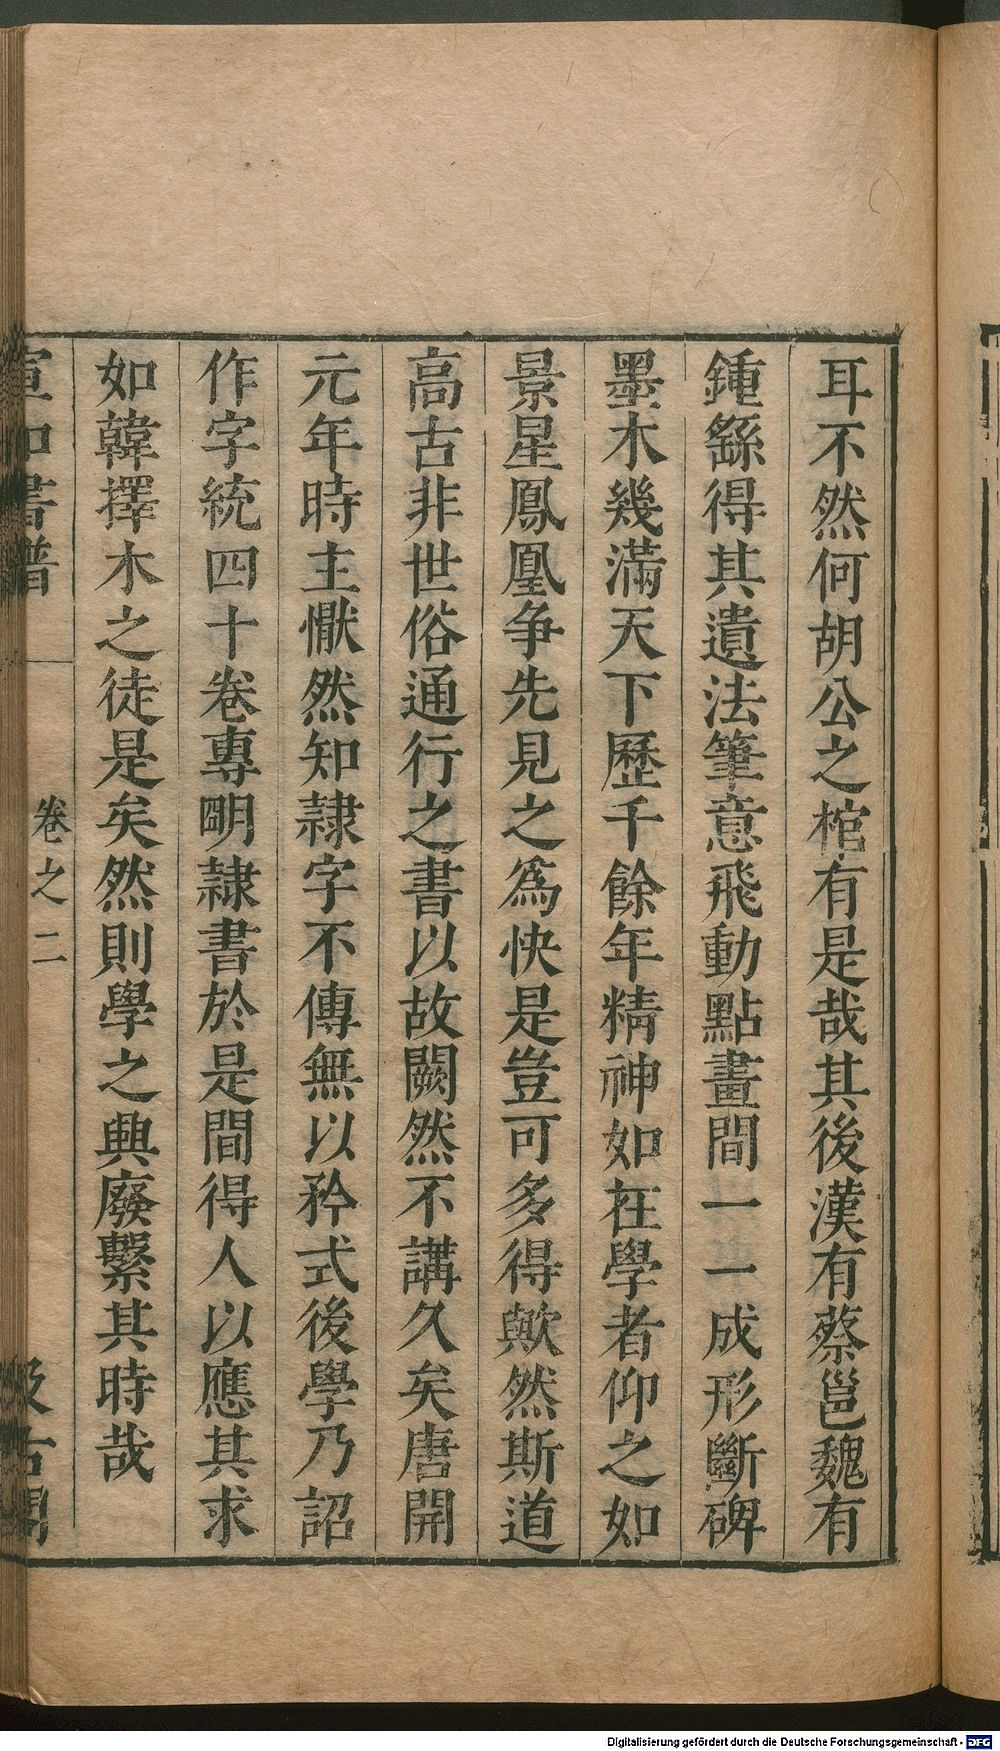 耳不然何胡公之棺有是哉其後漢有蔡邕魏有
鍾繇得其遺法筆意飛動點畫間一一成形斷碑
墨木幾滿天下歷千餘年精神如在學者仰之如
景星鳳凰争先見之爲快是豈可多得歟然斯道
高古非世俗通行之書以故闕然不講久矣唐開
元年時主懨然知隷字不傳無以矜式後學乃詔
作字統四十卷專明隷書於是間得人以應其求
如韓擇木之徒是矣然則學之興廢繫其時哉
宣和書譜
卷之二
汲古閣
Digitalisierung gefördert durch die Deutsche Forschungsgemeinschaft - DFG